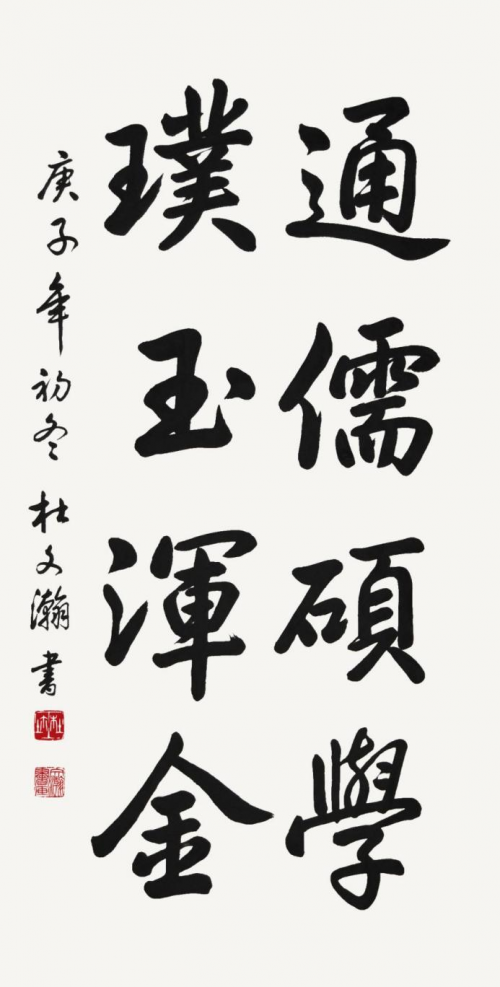 通儒硕學
璞玉渾金
庚子年初冬杜文瀚書